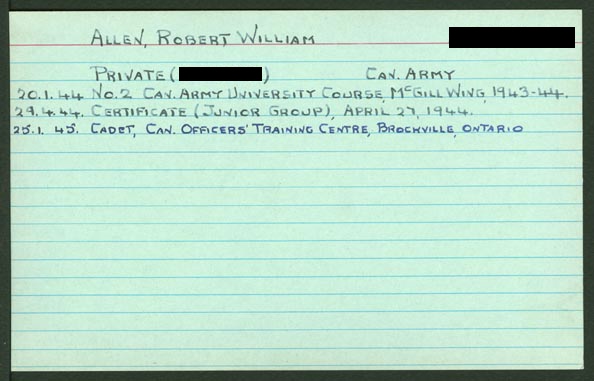 ALLEN, ROBERT WILLIAM
PRIVATE ( ) CAN. ARMY
20.1.44 NO.2 CAN. ARMY UNIVERSITY COURSE, MCGILL WING, 1943-44.
29.4.44. CERTIFICATE (JUNIOR GROUP), APRIL 27, 1944.
25.1.45. CADET, CAN. OFFICERS' TRAINING CENTRE, BROCKVILLE, ONTARIO